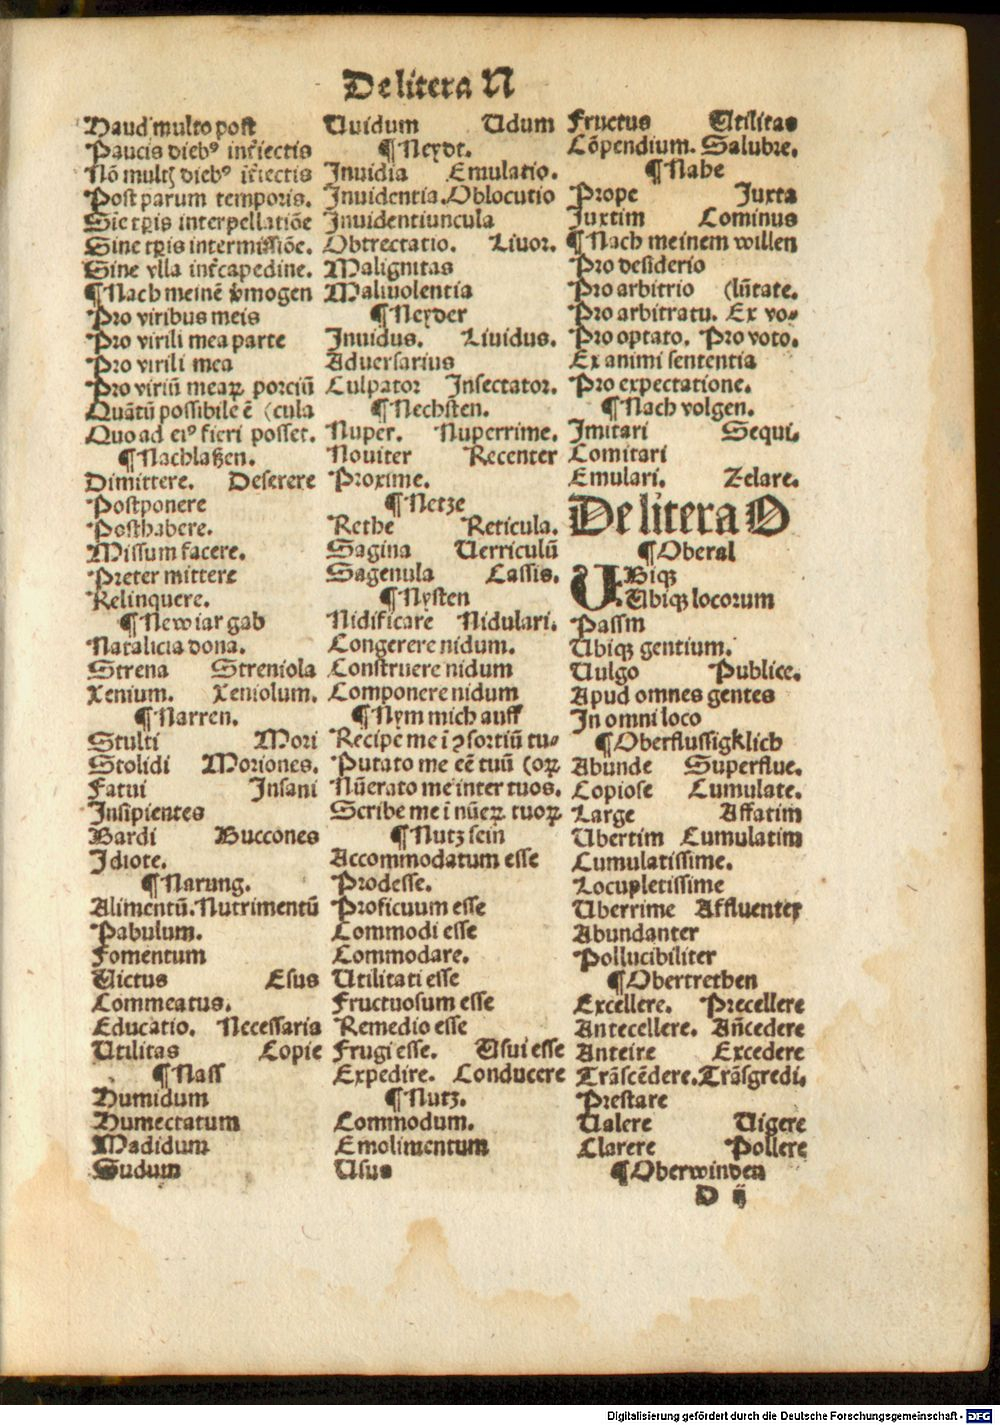 De litera N
Haud multo post
Paucis dieb⁹ int̄iectis
Nō multꝭ dieb⁹ īt̄iectis
Post parum temporis.
Sīe tp̄is interpellatiōe
Sine tp̄is intermissiōe.
Sine vlla int̄capedine.
¶Nach meinē v̄mogen
Pro viribus meis
Pro virili mea parte
Pro virili mea
Pro viriū meaꝝ porciū
Quātū possibile ē (cula
Quo ad ei⁹ fieri posset.
¶Nachlaßen.
Dimittere. Deserere
Postponere
Posthabere.
Missum facere.
Preter mittere
Relinquere.
¶New iar gab
Natalicia dona.
Strena Streniola
Xenium. Xeniolum.
¶Narren.
Stulti Mori
Stolidi Moriones.
Fatui Insani
Insipientes
Bardi Buccones
Idiote.
¶Narung.
Alimentū. Nutrimentū
Pabulum.
Fomentum
Victus Esus
Commeatus.
Educatio. Necessaria
Utilitas Copie
¶Nass
Humidum
Humectatum
Madidum
Sudum
Uuidum Udum
¶Neydt.
Inuidia Emulatio.
Inuidentia. Oblocutio
Inuidentiuncula
Obtrectatio. Liuor.
Malignitas
Maliuolentia
¶Neyder
Inuidus. Liuidus.
Aduersarius
Culpator Insectator.
¶Nechsten.
Nuper. Nuperrime.
Nouiter Recenter
Proxime.
¶Netze
Rethe Reticula.
Sagina Uerriculū
Sagenula Cassis.
¶Nysten
Nidificare Nidulari.
Congerere nidum.
Construere nidum
Componere nidum
¶Nym mich auff
Recipe me ī ꝯsortiū tu-
Putato me eē tuū (oꝝ
Nūerato me inter tuos.
Scribe me ī nūeꝝ tuoꝝ
¶Nutz sein
Accommodatum esse
Prodesse.
Proficuum esse
Commodi esse
Commodare.
Utilitati esse
Fructuosum esse
Remedio esse
Frugi esse. Usui esse
Expedire. Conducere
¶Nutz.
Commodum.
Emolimentum
Usus
Fructus Utilitas
Cōpendium. Salubre.
¶Nahe
Prope Juxta
Juxtim Cominus
¶Nach meinem willen
Pro desiderio
Pro arbitrio (lūtate.
Pro arbitratu. Ex vo-
Pro optato. Pro voto.
Ex animi sententia
Pro expectatione.
¶Nach volgen.
Imitari Sequi.
Comitari
Emulari. Zelare.
De litera O
¶Oberal
UBiqꝫ
Ubiqꝫ locorum
Passm
Ubiqꝫ gentium.
Uulgo Publice.
Apud omnes gentes
In omni loco
¶Oberflussigklich
Abunde Superflue.
Copiose Cumulate.
Large Affatim
Ubertim Cumulatim
Cumulatissime.
Locupletissime
Uberrime Affluenter
Abundanter
Pollucibiliter
¶Obertrethen
Excellere. Precellere
Antecellere. An̄cedere
Anteire Excedere
Trāscēdere. Trāsgredi.
Prestare
Ualere Uigere
Clarere Pollere
¶Oberwinden
D ij
Digitalisierung gefördert durch die Deutsche Forschungsgemeinschaft - DFG